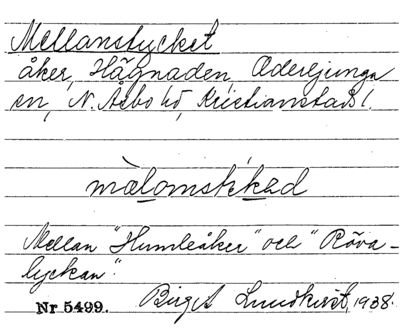 Mellanstycket
åker, Hägnaden, Oderljunga
sn, N. Åsbo hd, Kristianstads l.
Mellan "Humleåker" och "Röva-
lyckan".
Nr 5499. Birgit Lundkvist, 1938.